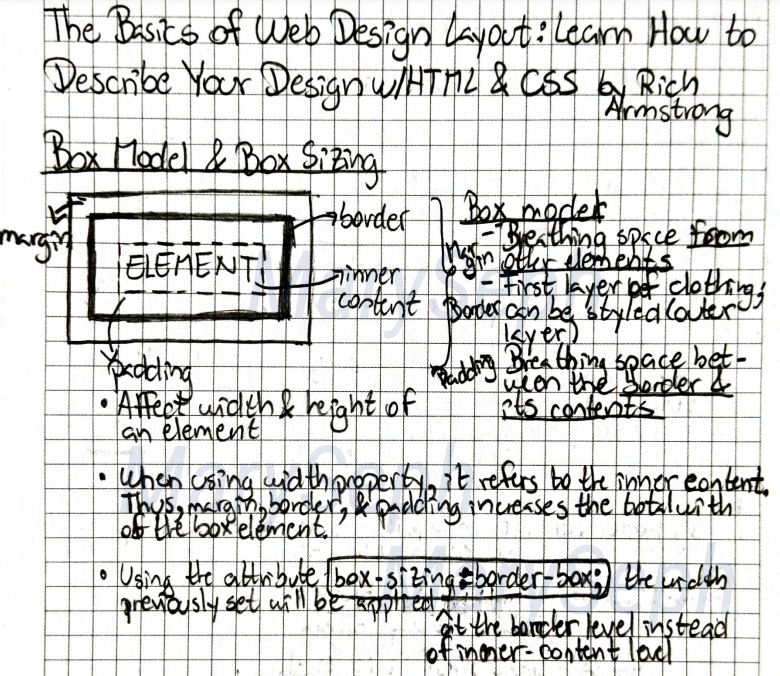 The Basics of Web Design Layout: Learn How to
Describe Your Design w/HTML & CSS by Rich
Armstrong
Box Model & Box Sizing
margin
border
ELEMENT
inner
content
padding
Box model
Margin - Breathing space from
other elements
Border - first layer of clothing;
can be styled (outer
layer)
Padding Breathing space bet-
ween the border &
its contents
• Affect width & height of
an element
• When using width property, it refers to the inner content.
Thus, margin, border, & padding increases the total with
of the box element.
• Using the attribute box-sizing: border-box; the width
previously set will be applied
at the border level instead
of inner-content level
MarySeph
MarySeph
MarySeph